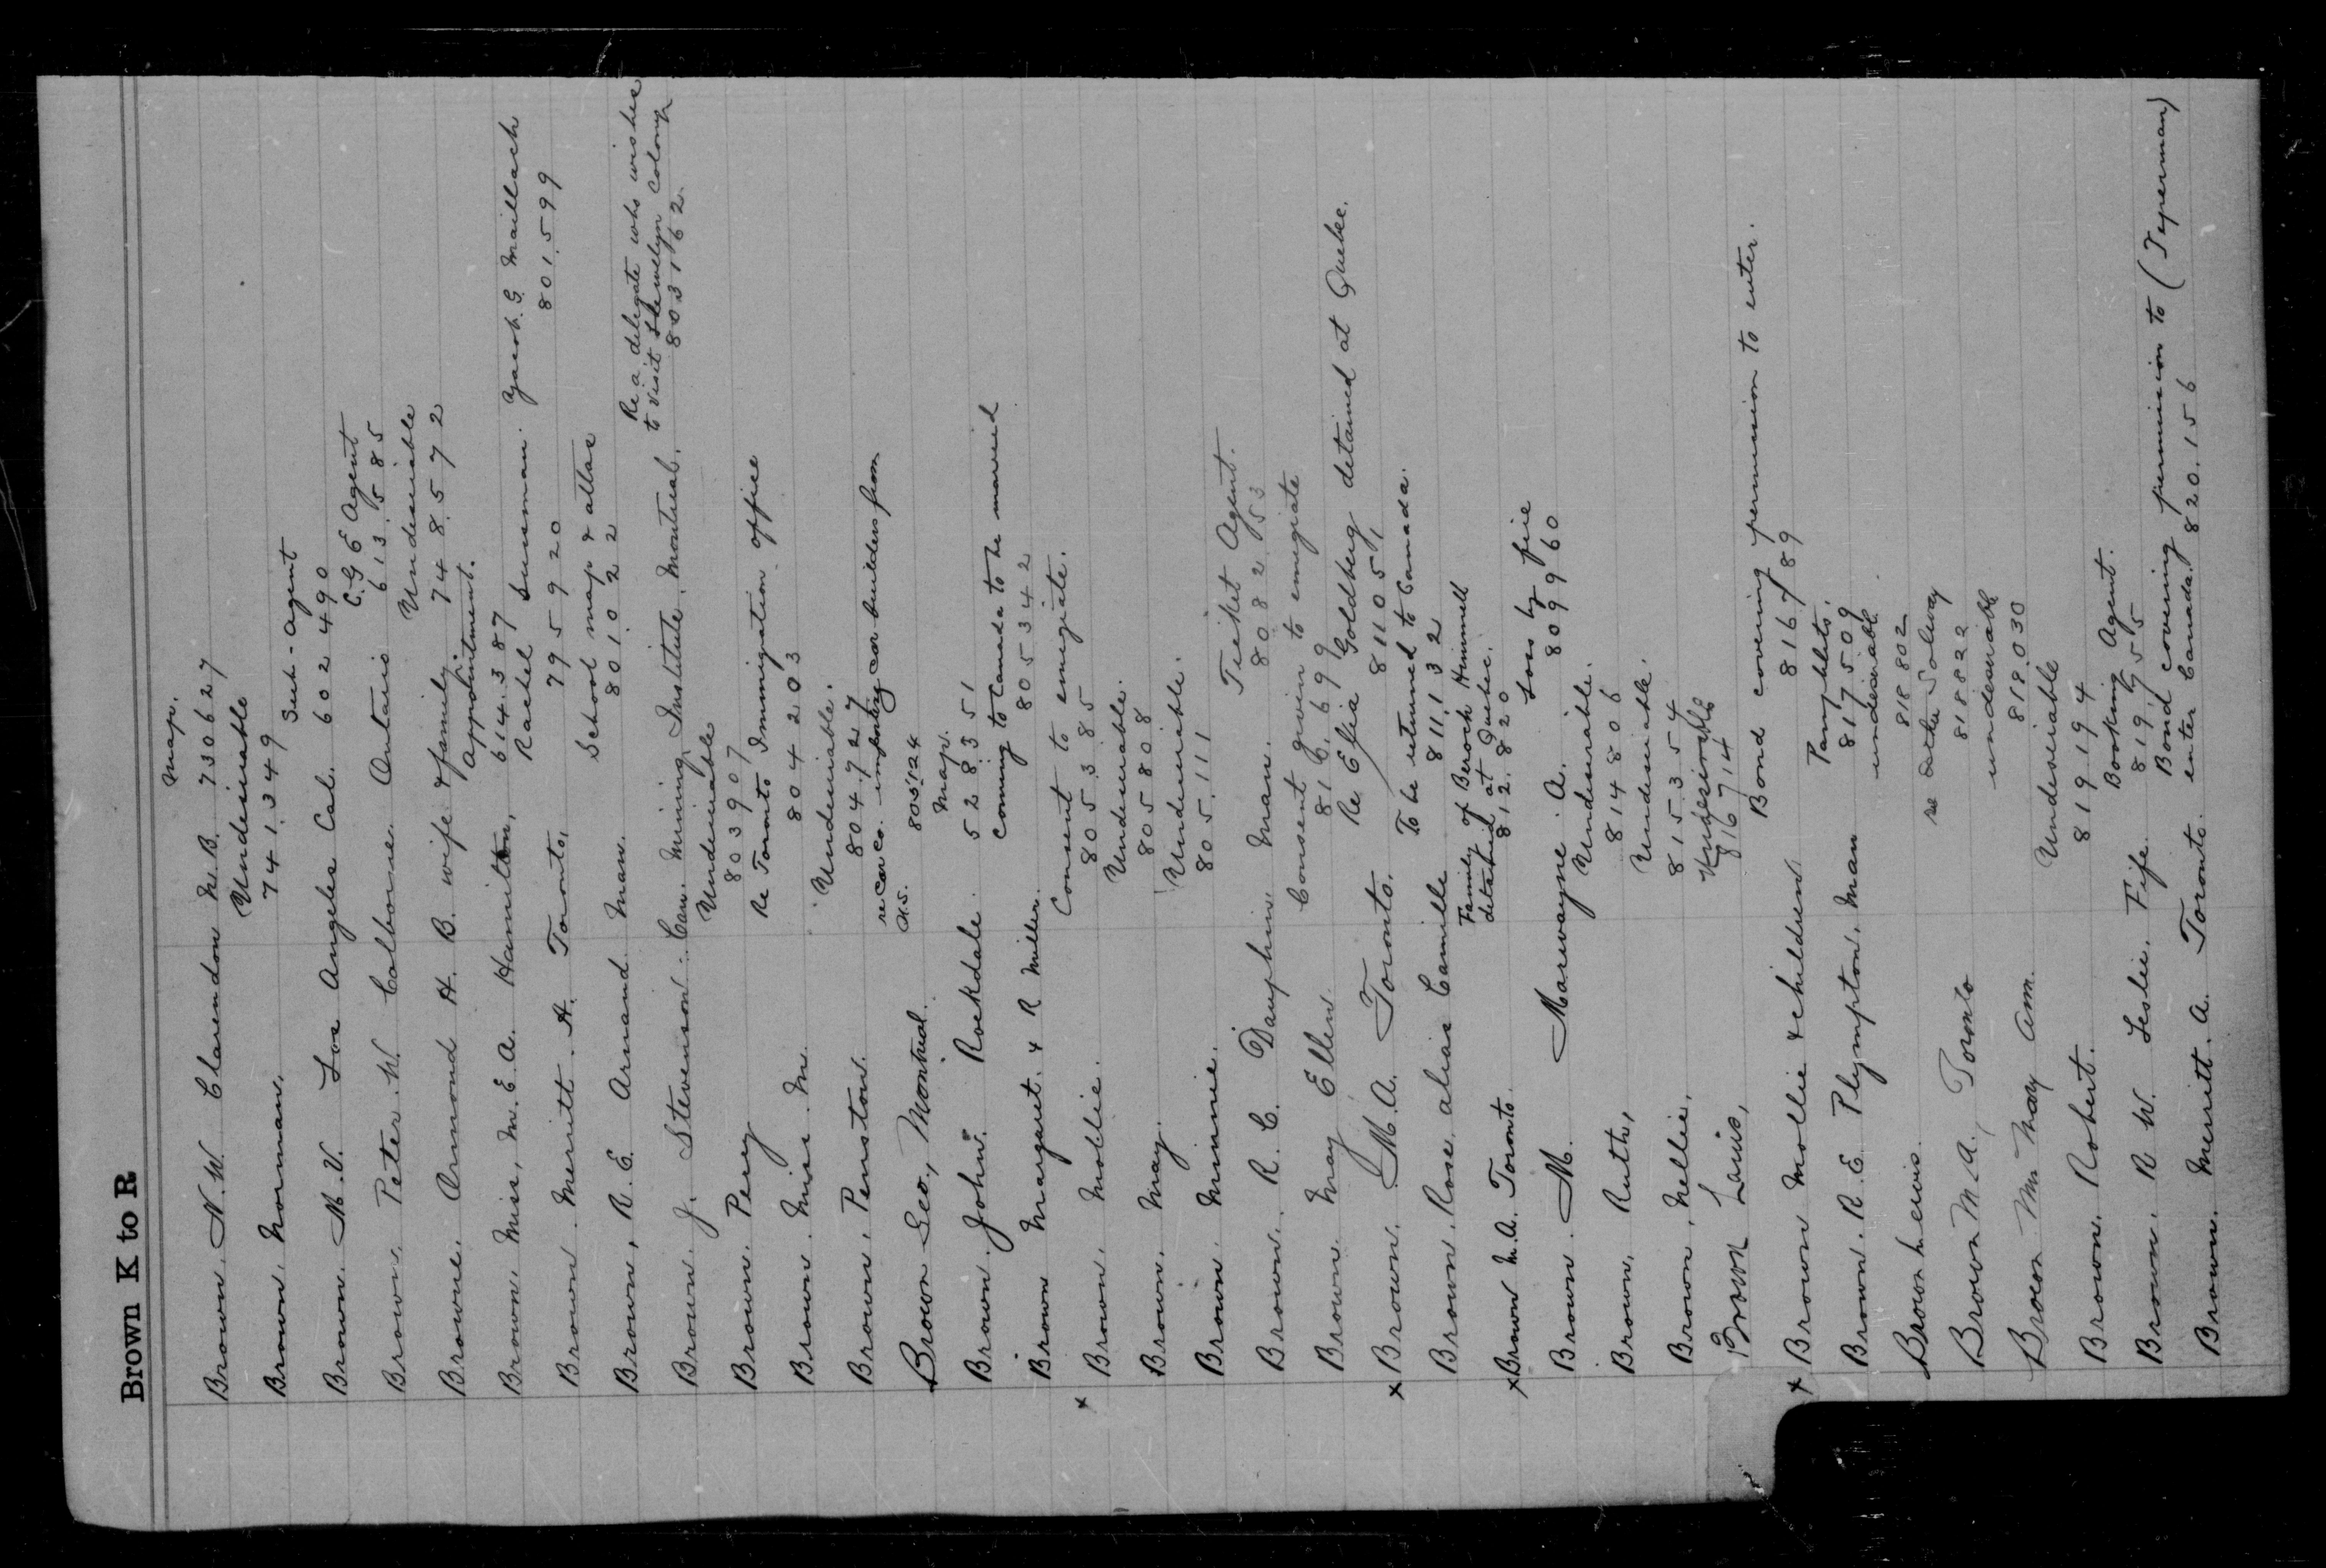 Brown K to R
Map.
Brown. N.W. Clarendon N.B. 730627
Undesirable
Brown. Norman. 741.349
Sub-Agent
Brown. M.V. Los Angeles Cal. 602490
C.G.E Agent
Brown. Peter. W. Colborne. Ontario 613.585
Undesirable
Browne. Armond H. B. wife & family. 748.572
Appointment.
Brown. Miss, M.E.A. Hamilton, 614.387
Jacob. G. Maillach
Rachel Susman. 801.599
Brown. Merritt. A. Toronto, 795920
School map & atlas
Brown, R.E. Arnaud Man. 801022
Re a delegate who wishes
to visit Llewellyn Colony
Brown. J. Stevenson. Can. Mining Institute. Montreal. 803162
Undesirable
Brown. Percy 803907
Re Toronto Immigration office
Brown. Miss. M. 804203
Undesirable.
Brown, Penston. 804727
re Car Co. importing car builders from
U.S.
Brown Geo., Montreal. 805124
Map.
Brown. John. Rockdale. 528351
Coming to Canada to be married
Brown Margaret. & R Miller. 805342
Consent to emigrate.
x Brown, Mollie. 805385
Undesirable.
Brown, May. 805808
Undesirable.
Brown. Minnie. 805.111
Ticket Agent.
Brown. R. C. Dauphin Man. 808253
Consent given to emigrate
Brown. May Ellen. 816.699
Re Efia Goldberg detained at Quebec.
x Brown. M.A. Toronto. 811051
To be returned to Canada.
Brown. Rose alias Camille 811.132
Family of Beroch Himmell
detained at Quebec.
x Brown M.A. Toronto. 812.820
Loss by fire
Brown. M. Marwayne. A. 809960
Undesirable.
Brown, Ruth, 814806
Undesirable.
Brown, Nellie, 815354
Undesirable
Brown Louis, 816714
Bond covering permission to enter.
x Brown Mollie & children 816789
Pamphlets.
Brown. R.E. Plympton, Man 817509
undesirable
Brown Lewis. 818802
Brown M.A., Toronto 818822
undesirable
Brown Mrs Mary Ann. 819.030
Undesirable
Brown. Robert. 819194
Booking Agent.
Brown. R.W. Leslie. Fife. 819755
Bond covering permission to (Teperman)
enter Canada.
Brown. Merritt. A. Toronto. 820.156